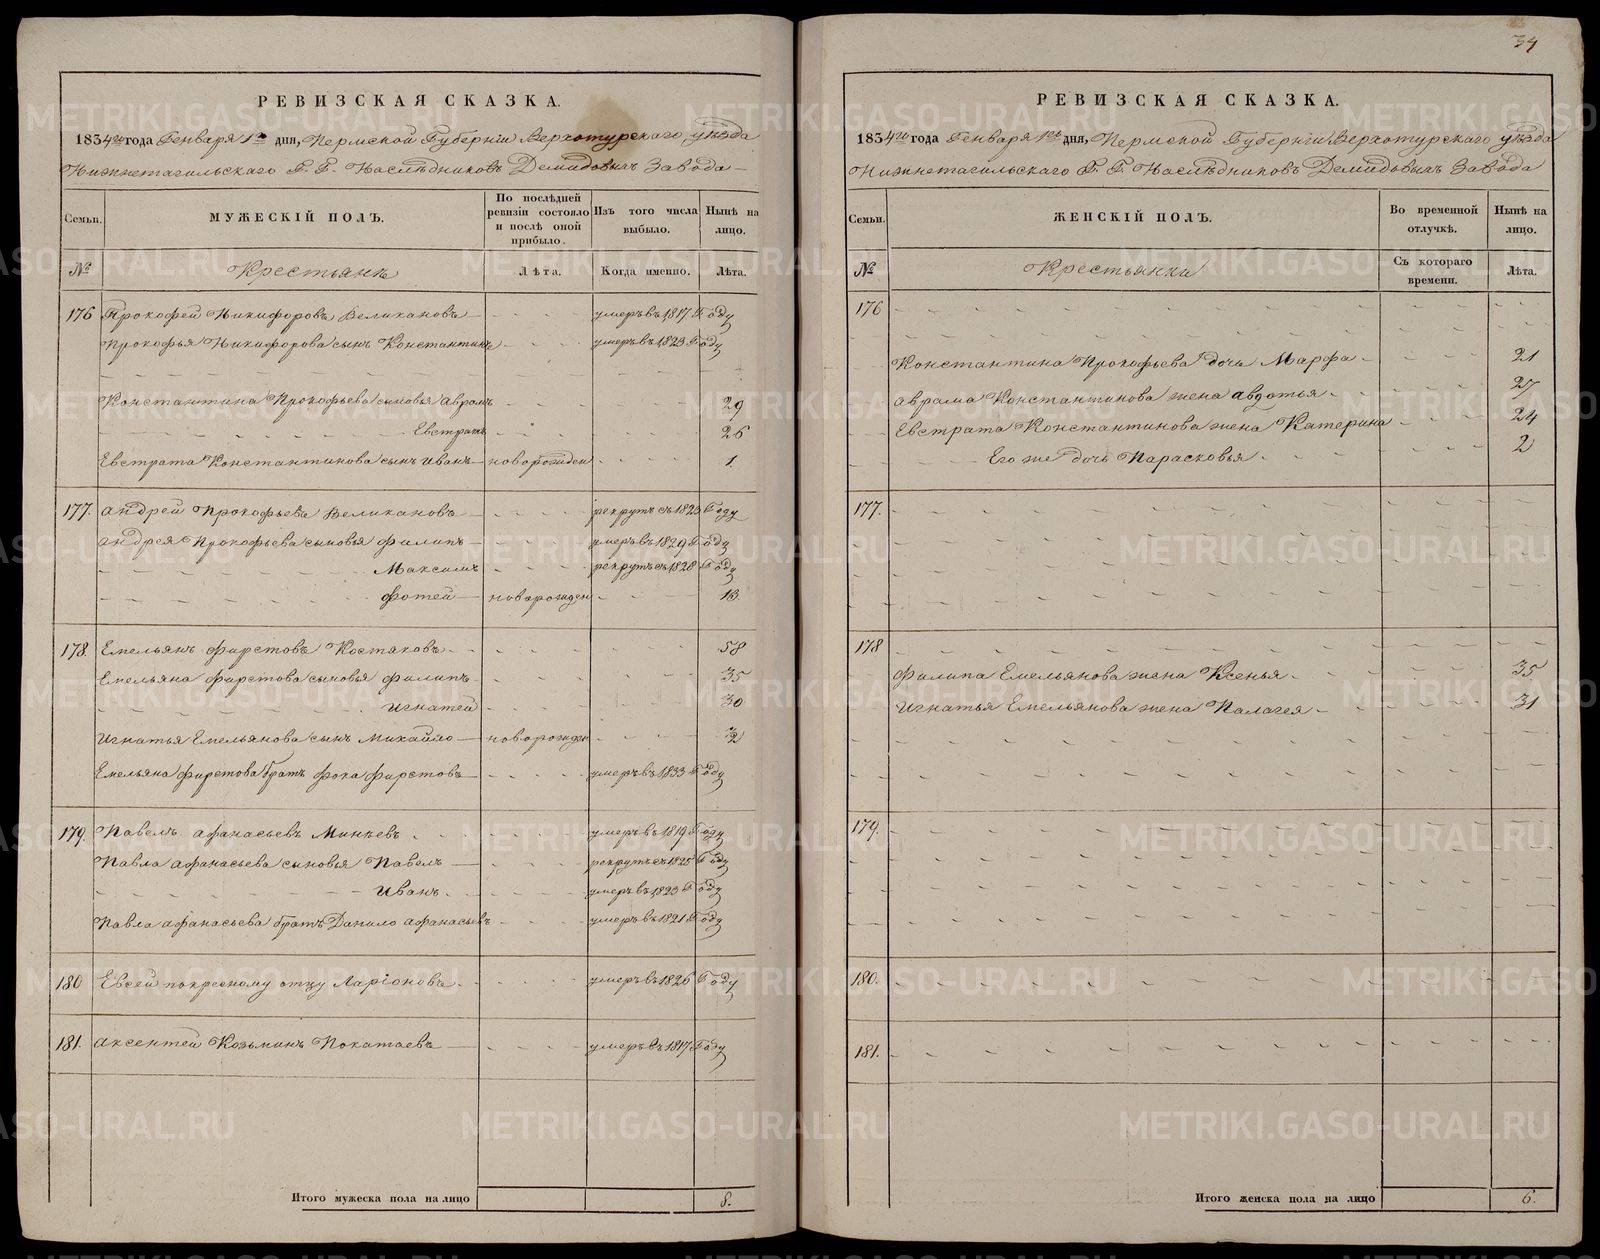 РЕВИЗСКАЯ СКАЗКА.
1834го года Генваря 1го дня, Пермской Губернiи Верхотурскаго уѣзда
Нижнетагильскаго Г. Г. Наслѣдниковъ Демидовыхъ Завода
Семьи. МУЖЕСКIЙ ПОЛЪ. По послѣдней ревизiи состояло и послѣ оной прибыло. Изъ того числа выбыло. Нынѣ на лицо.
№ Крестьянъ Лѣта. Когда именно. Лѣта.
176 Прокофей Никифоровъ Великановъ умеръ въ 1817 Году
Прокофья Никифорова сынъ Константинъ умеръ въ 1823 Году
Константина Прокофьева сыновья Аврамъ 29
Евстратъ 26
Евстрата Константинова сынъ Иванъ новорожден 1
177. Андрей Прокофьевъ Великановъ рекрутъ съ 1823 Году
Андрея Прокофьева сыновья Филипъ умеръ въ 1829 Году
Максимъ рекрутъ съ 1828 Году
Фотей новорожден 13.
178. Емельянъ Фирстовъ Костяковъ 58
Емельяна Фирстова сыновья Филипъ 35
Игнатей 30
Игнатья Емельянова сынъ Михайло новорожден 2
Емельяна Фирстова братъ Фока Фирстовъ умеръ въ 1833 Году
179. Павелъ Афанасьевъ Минѣевъ умеръ въ 1819 Году
Павла Афанасьева сыновья Павелъ рекрутъ съ 1825 Году
Иванъ умеръ въ 1823 Году
Павла Афанасьева братъ Данило Афанасьевъ умеръ въ 1821 Году
180 Евсей по кресному отцу Ларiоновъ умеръ въ 1826 Году
181. Аксентей Козьминъ Покатаевъ умеръ въ 1817 Году
Итого мужеска пола на лицо 8.
34
РЕВИЗСКАЯ СКАЗКА.
1834го года Генваря 1го дня, Пермской Губернiи Верхотурскаго уѣзда
Нижнетагильскаго Г. Г. Наслѣдниковъ Демидовыхъ Завода
Семьи. ЖЕНСКIЙ ПОЛЪ. Во временной отлучкѣ. Нынѣ на лицо.
№ Крестьянки Съ котораго времени. Лѣта.
176
Константина Прокофьева дочь Марфа 21
Аврама Константинова жена Авдотья 27
Евстрата Константинова жена Катерина 24
Его же дочь Парасковья 2
177.
178
Филипа Емельянова жена Ксенья 35
Игнатья Емельянова жена Палагея 31
179.
180.
181.
Итого женска пола на лицо 6.
METRIKI.GASO-URAL.RU